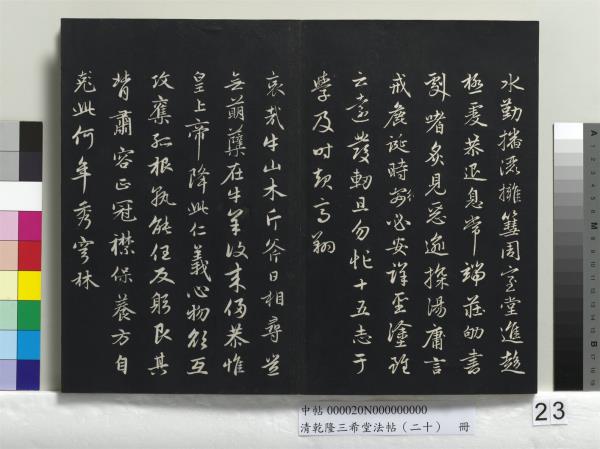 水勤播灑擁篲周室堂進趨
極虔恭退息常端莊劬書
劇嗜炙見惡逾探湯庸言
戒麤誕時行必安詳聖塗雖
云遠發軔且勿忙十五志于
學及时起高翔
哀哉牛山木斤斧日相尋豈
無萌蘖在牛羊復來侵恭惟
皇上帝降此仁義心物欲互
攻奪孤根孰能任反躬艮其
背肅容正冠襟保養方自
此何年秀穹林
中帖 000020N000000000
清乾隆三希堂法帖（二十） 冊
23